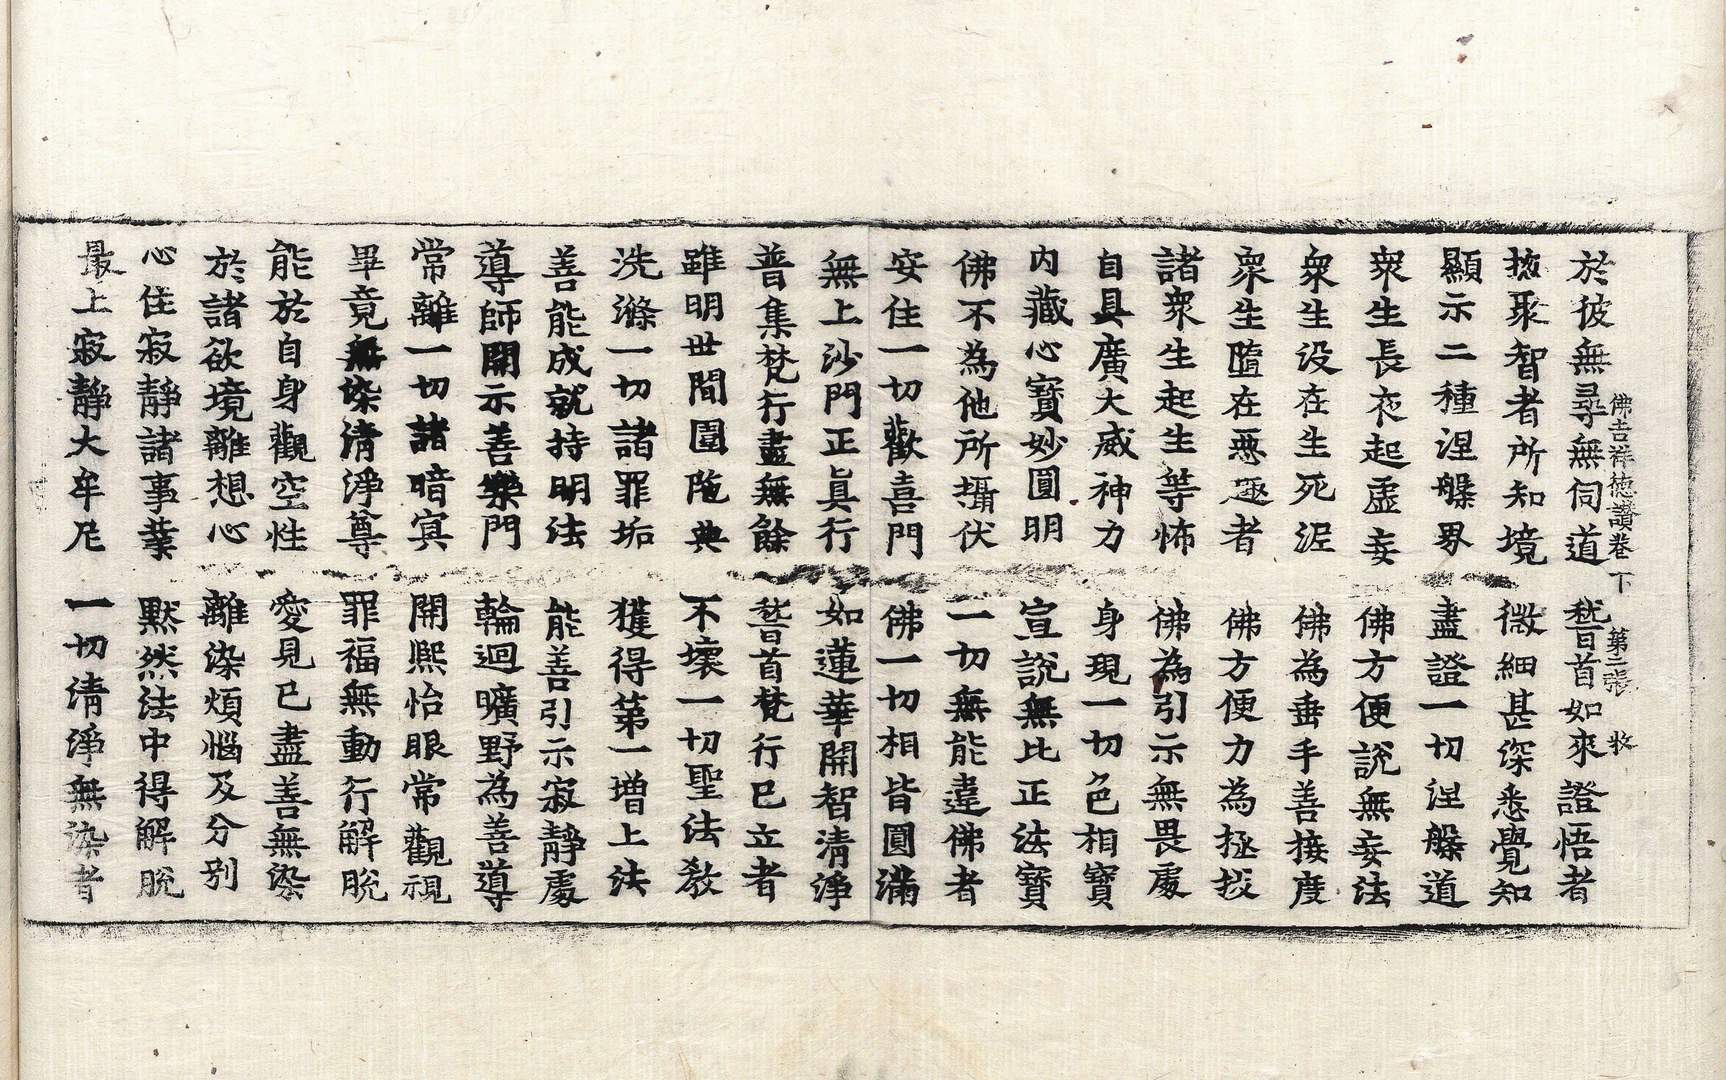 佛吉祥德讚卷下 第二張 牧
於彼無尋無伺道 嵆首如來證悟者
㧞聚智者所知境 微細甚深悉覺知
顯示二種涅槃界 盡證一切涅槃道
衆生長夜起虛妄 佛方便說無妄法
衆生没在生死泥 佛為垂手善接度
衆生墮在惡趣者 佛方便力為拯㧞
諸衆生起生等怖 佛為引示無畏處
自具廣大威神力 身現一切色相寶
内藏心寶妙圓明 宣說無比正法寶
佛不為他所攝伏 一切無能違佛者
安住一切歡喜門 佛一切相皆圓滿
無上沙門正眞行 如蓮華開智清淨
普集梵行盡無餘 嵆首梵行已立者
雖明世間圍陁典 不壞一切聖法教
洗滌一切諸罪垢 獲得第一增上法
善能成就持明法 能善引示寂靜處
導師開示善樂門 輪迴曠野為善導
常離一切諸暗冥 開熈怡眼常觀視
畢竟無染清淨尊 罪福無動行解脫
能於自身觀空性 愛見已盡善無染
於諸欲境離想心 離染煩惱及分別
心住寂靜諸事業 默然法中得解脫
最上寂靜大牟尼 一切清淨無染者